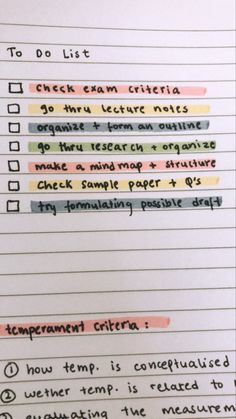 To Do List
check exam criteria
go thru lecture notes
organize + form an outline
go thru research + organize
make a mind map + structure
Check sample paper + Q's
try formulating possible draft
temperament criteria :
① how temp. is conceptualised
② wether temp. is related to
evaluating the measurem